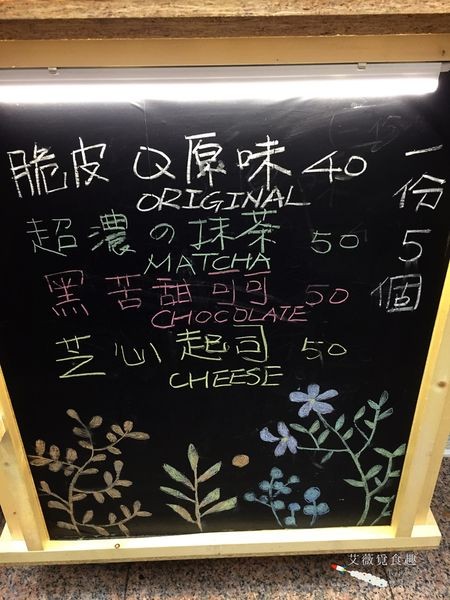 脆皮 Q原味 40
ORIGINAL
超濃の抹茶 50
MATCHA
黑苦甜可可 50
CHOCOLATE
芝心起司 50
CHEESE
一份5個
艾薇覓食趣